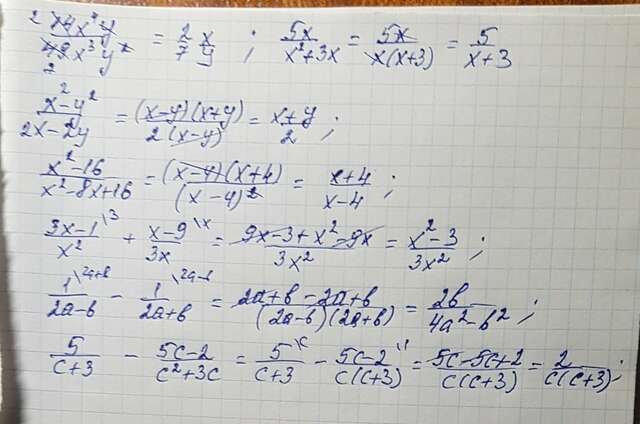 2 14x⁴y / 49x³y² 7 = 2x / 7y ; 5x / x²+3x = 5x / x(x+3) = 5 / x+3
x²-y² / 2x-2y = (x-y)(x+y) / 2(x-y) = x+y / 2 ;
x²-16 / x²-8x+16 = (x-4)(x+4) / (x-4)² = x+4 / x-4 ;
3x-1 \3 / x² + x-9 \x / 3x = 9x-3+x²-9x / 3x² = x²-3 / 3x² ;
1 \2a+b / 2a-b - 1 \2a-b / 2a+b = 2a+b-2a+b / (2a-b)(2a+b) = 2b / 4a²-b² ;
5 / c+3 - 5c-2 / c²+3c = 5 \c / c+3 - 5c-2 \1 / c(c+3) = 5c-5c+2 / c(c+3) = 2 / c(c+3) ;